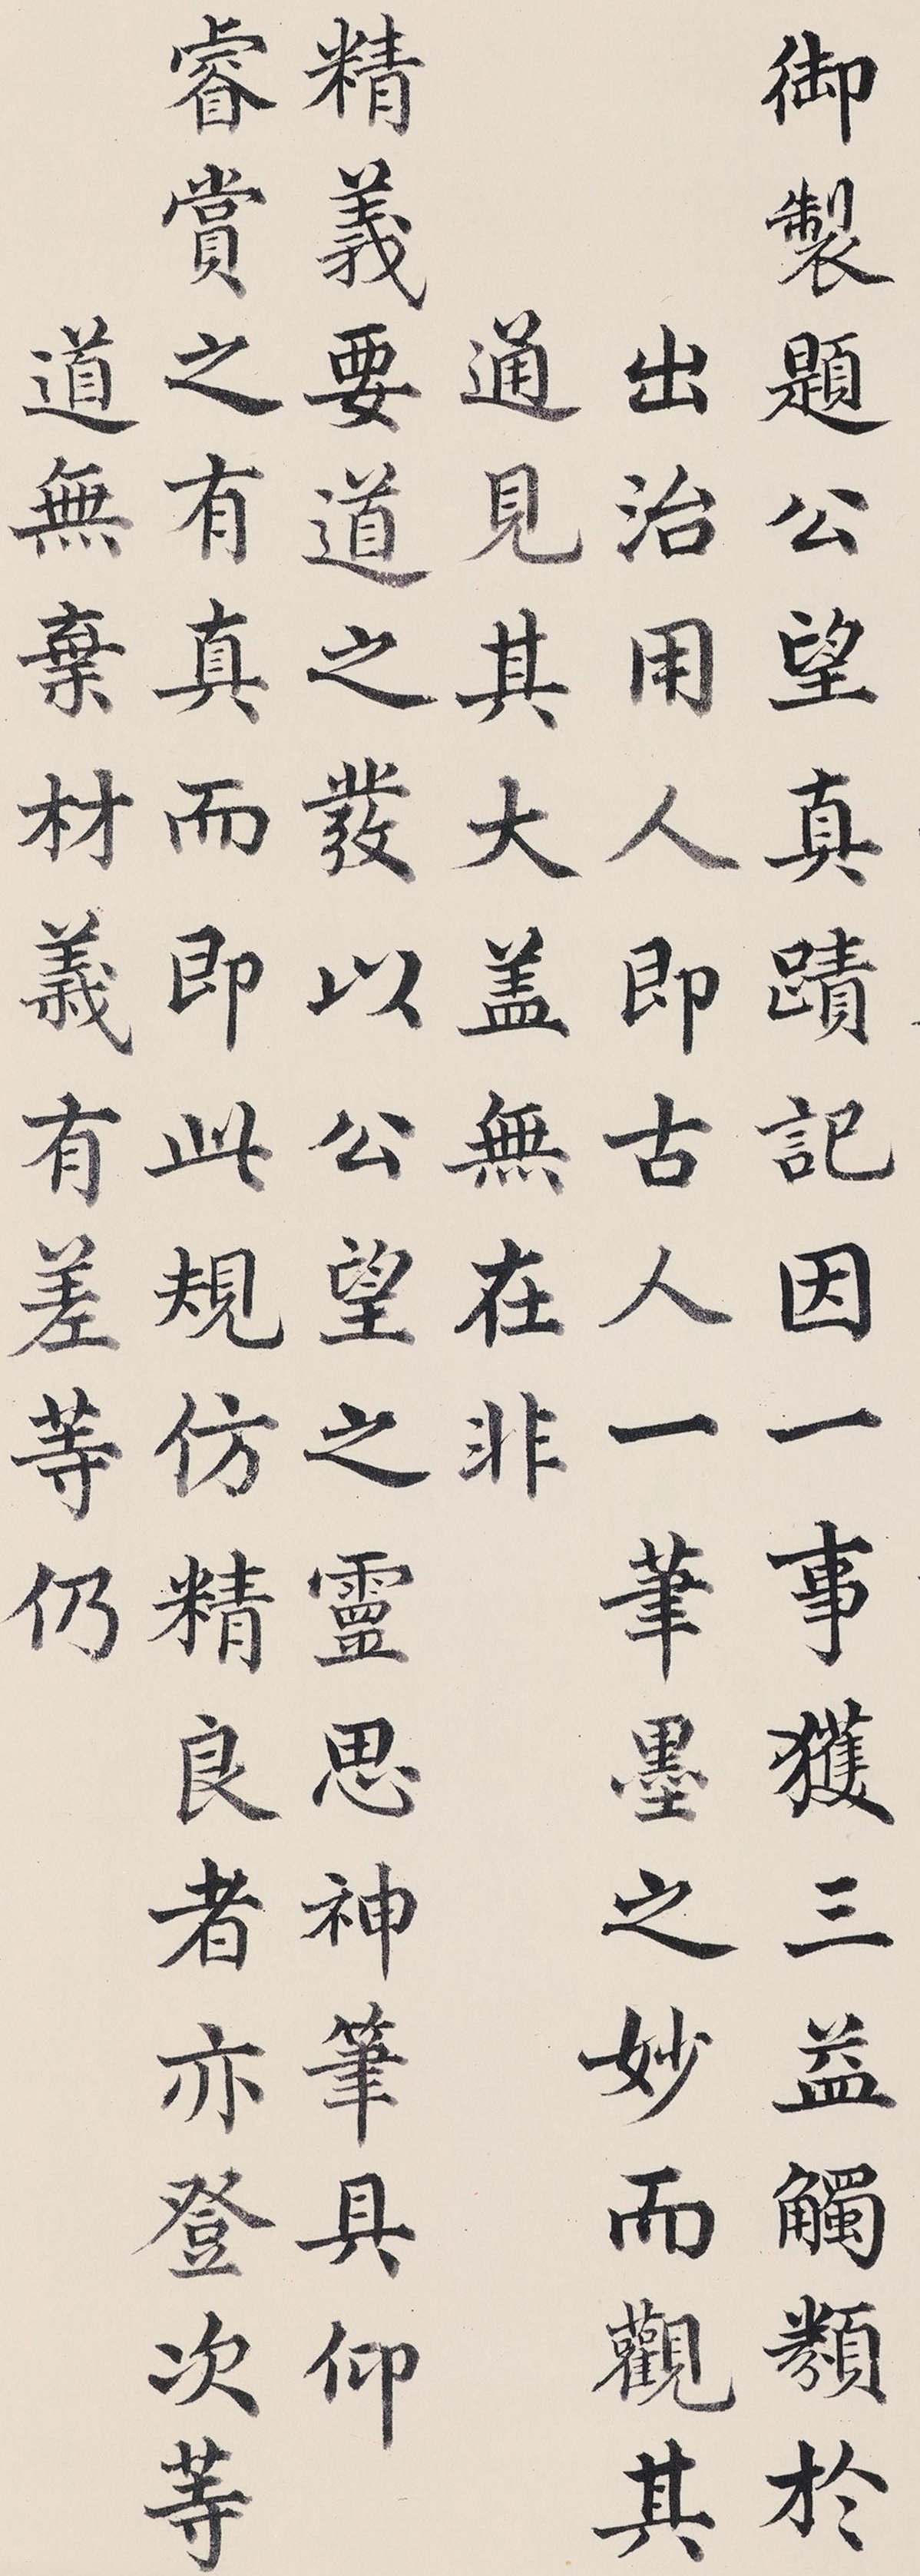 御製題公望真蹟記因一事獲三益觸類於
出治用人即古人一筆墨之妙而觀其
通見其大盖無在非
精義要道之發以公望之靈思神筆具仰
睿賞之有真而即此規仿精良者亦登次等
道無棄材義有差等仍